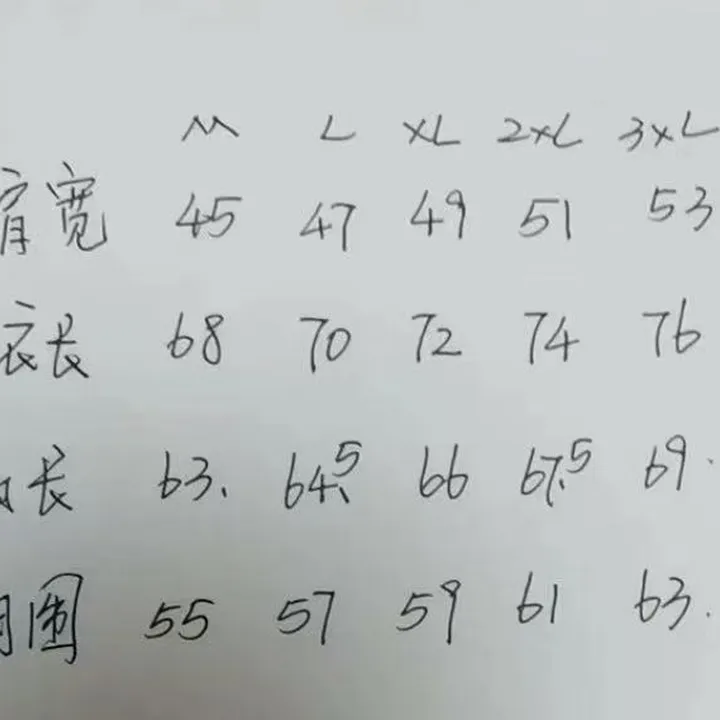 M L XL 2XL 3XL
肩宽 45 47 49 51 53
衣长 68 70 72 74 76
长 63. 64.5 66 67.5 69.
围 55 57 59 61 63.